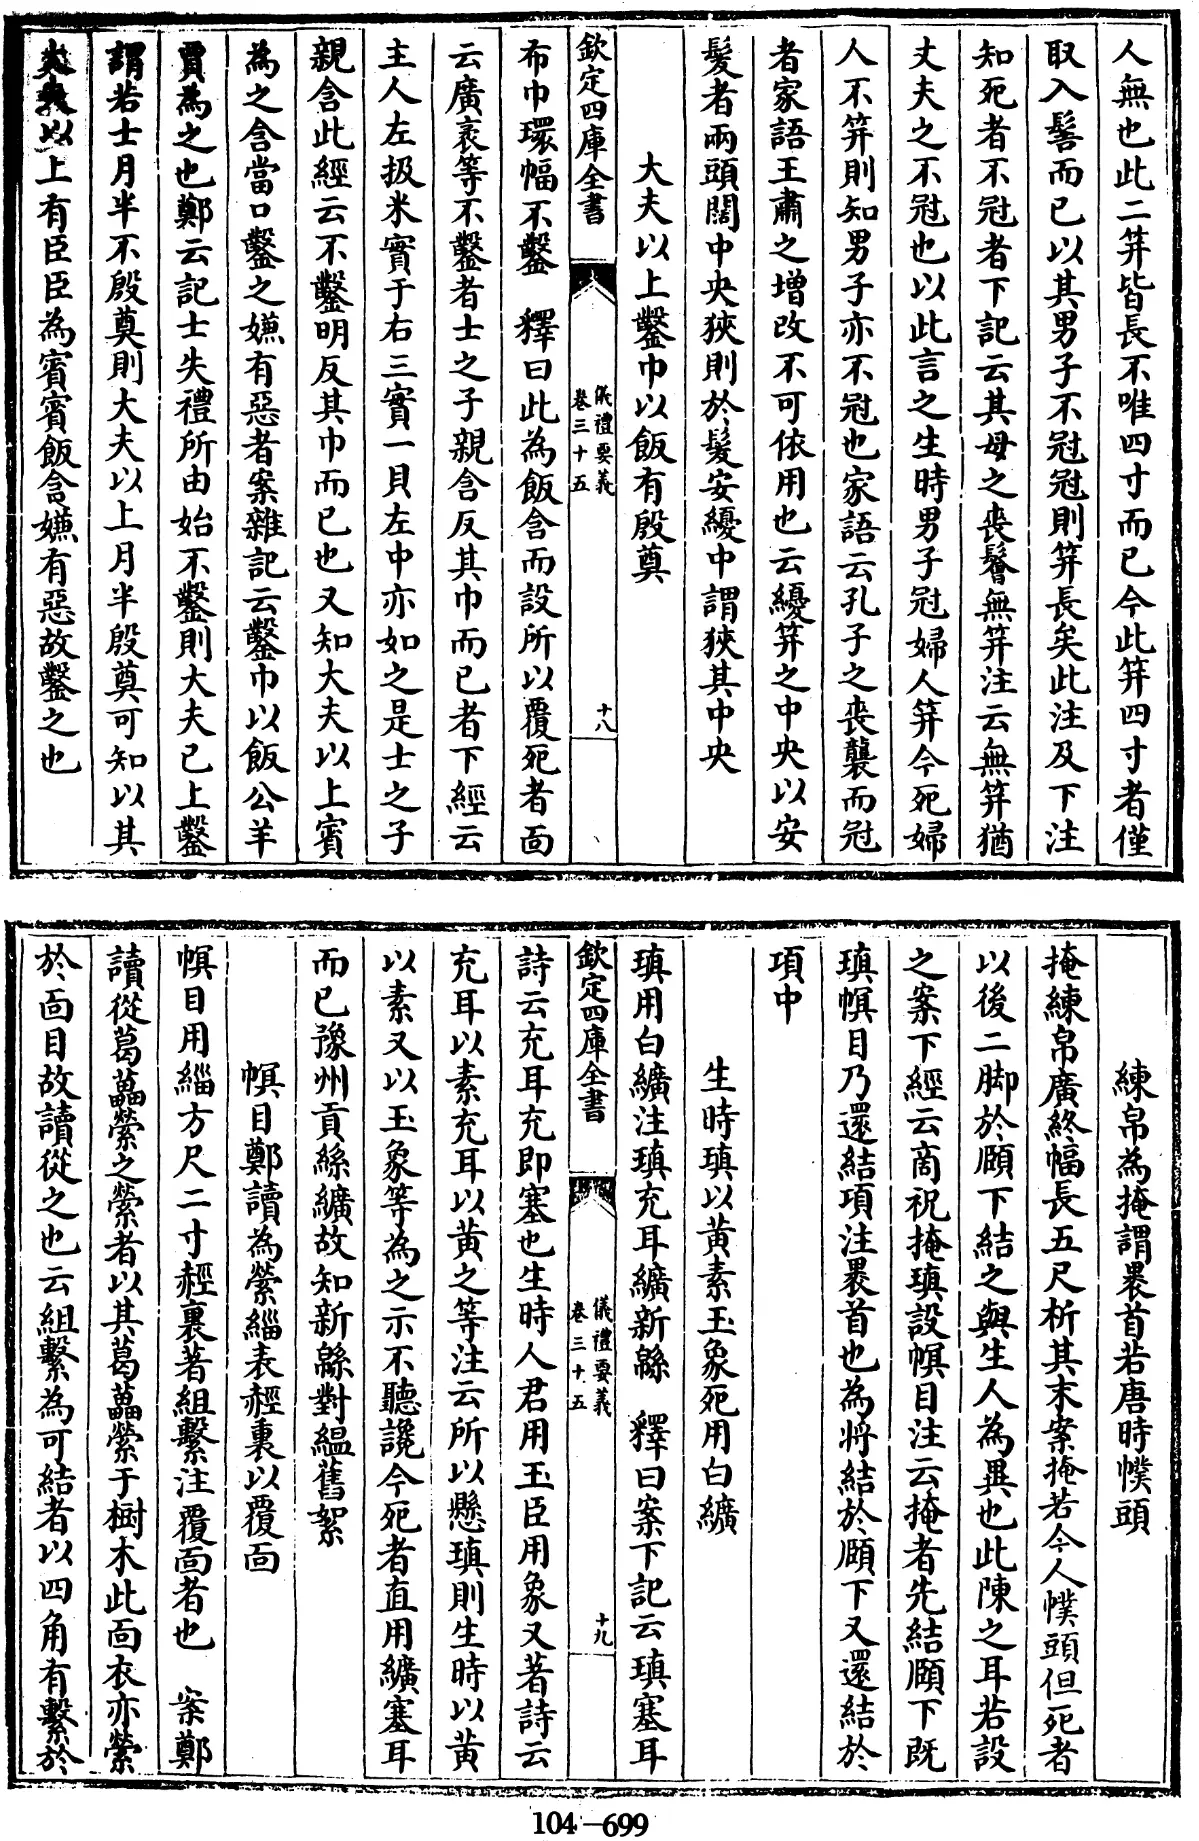 人無也此二笄皆長不唯四寸而已今此笄四寸者僅
取入髻而已以其男子不冠冠則笄長矣此注及下注
知死者不冠者下記云其母之喪鬠無笄注云無笄猶
丈夫之不冠也以此言之生時男子冠婦人笄今死婦
人不笄則知男子亦不冠也家語云孔子之喪襲而冠
者家語王肅之增改不可依用也云纋笄之中央以安
髮者兩頭闊中央狹則於髮安纋中謂狹其中央
大夫以上鑿巾以飯有殷奠
欽定四庫全書
儀禮要義
卷三十五
十八
布巾環幅不鑿 釋曰此為飯含而設所以覆死者面
云廣袤等不鑿者士之子親含反其巾而已者下經云
主人左扱米實于右三實一貝左中亦如之是士之子
親含此經云不鑿明反其巾而已也又知大夫以上賓
為之含當口鑿之嫌有惡者案雜記云鑿巾以飯公羊
賈為之也鄭云記士失禮所由始不鑿則大夫已上鑿
謂若士月半不殷奠則大夫以上月半殷奠可知以其
以上有臣臣為賓賓飯含嫌有惡故鑿之也
練帛為掩謂裹首若唐時幞頭
掩練帛廣終幅長五尺析其末案掩若今人幞頭但死者
以後二脚於頤下結之與生人為異也此陳之耳若設
之案下經云商祝掩瑱設幎目注云掩者先結頤下既
瑱幎目乃還結項注裹首也為將結於頤下又還結於
項中
生時瑱以黃素玉象死用白纊
瑱用白纊注瑱充耳纊新緜 釋曰案下記云瑱塞耳
欽定四庫全書
儀禮要義
卷三十五
十九
詩云充耳充即塞也生時人君用玉臣用象又著詩云
充耳以素充耳以黃之等注云所以懸瑱則生時以黃
以素又以玉象等為之示不聽讒今死者直用纊塞耳
而已豫州貢絲纊故知新緜對緼舊絮
幎目鄭讀為縈緇表䞓裏以覆面
幎目用緇方尺二寸䞓裏著組繫注覆面者也 案鄭
讀從葛藟縈之縈者以其葛藟縈于樹木此面衣亦縈
於面目故讀從之也云組繫為可結者以四角有繫於
104-699